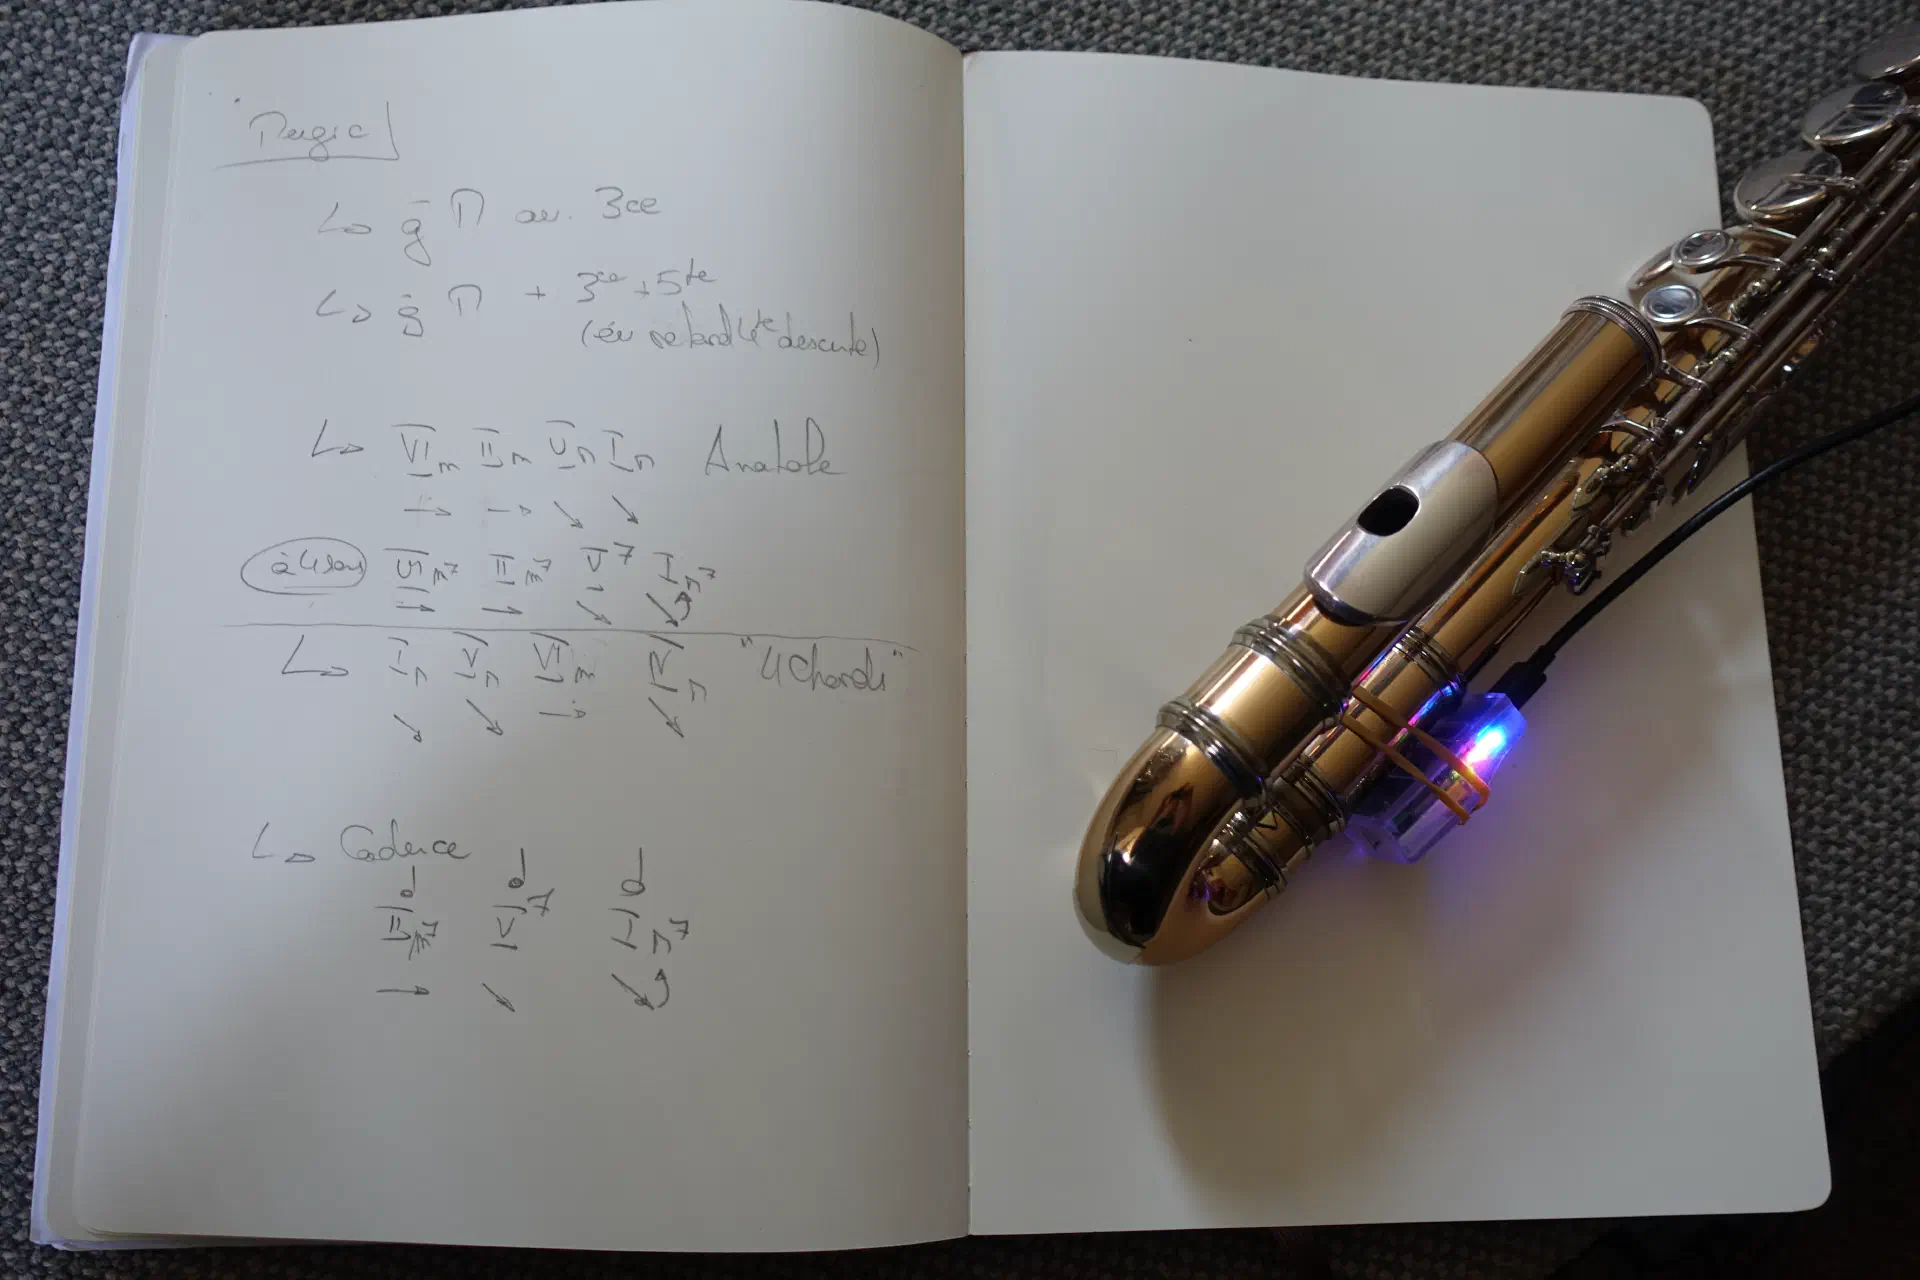 ↳ g̅ M av. 3ce
↳ g̅ M + 3ce + 5te
(év retard 4te descente)
↳ VIm IIm VM IM Anatole
→ → ↘ ↘
à 4 sons VIm7 IIm7 V7 IM7
→ → ↘ ↘
↳ IM VM VIm IVM "4 Chords"
↘ ↘ → ↘
↳ Cadence
IIm7 V7 IM7
→ ↘ ↘